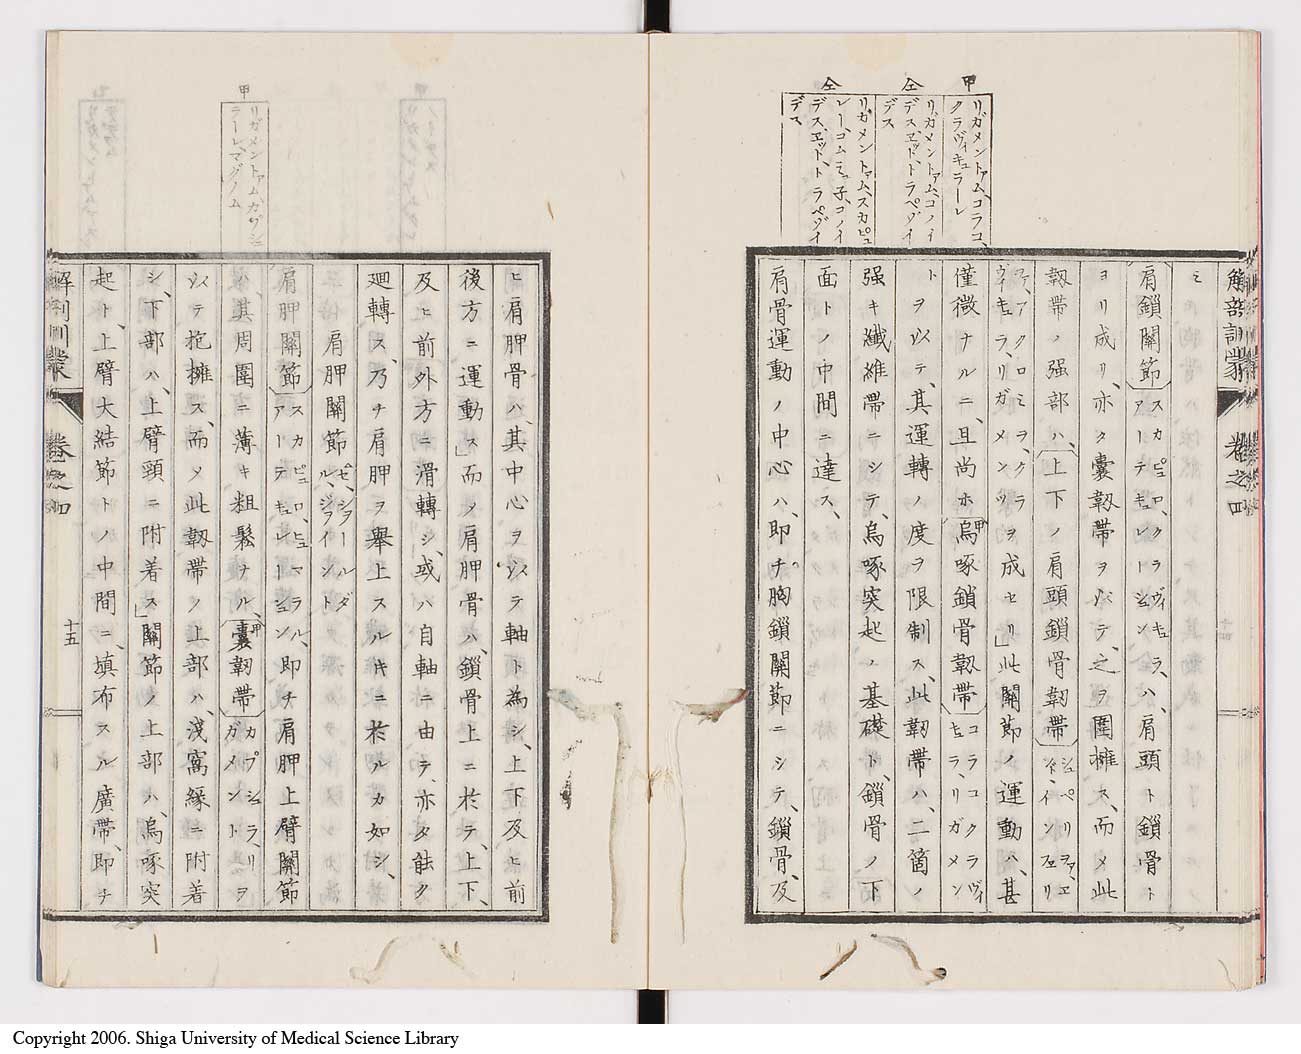 甲
リガメントァム、コラコ、
クラヴィキュラーレ
仝
リガメントァム、コノイ
デス、エット、トラペゾイ
デス
仝
リガメントァム、スカピュ
レー、コムミュ子、コノイ
デス、エット、トラペゾイ
デス
解剖訓蒙 卷之四
ミ
肩鎖關節 スカピュロ、クラヴィキュラ、アーテキュレーション、ハ、肩頭ト鎖骨ト
ヨリ成リ、亦タ囊韌帶ヲ以テ、之ヲ圍擁ス、而メ此
韌帶ノ强部ハ、上下ノ肩頭鎖骨韌帶 シュペリヲァ、エンド、インフェリ
ヲァ、アクロミヲ、クラヴィキュラ、リガメンツ ヲ成セリ」此關節ノ運動ハ、甚
僅微ナルニ、且尚ホ、烏啄鎖骨韌帶 コラコクラヴィキュラ、リガメン
ト ヲ以テ、其運轉ノ度ヲ限制ス、此韌帶ハ、二箇ノ
强キ纖維帶ニシテ、烏啄突起ノ基礎ト、鎖骨ノ下
面トノ中間ニ達ス、
肩骨運動ノ中心ハ、即チ胸鎖關節ニシテ、鎖骨、及
甲
リガメントァム、カプシュ
ラーレ、マグノム
ヒ肩胛骨ハ、其中心ヲ以テ軸ト為シ、上下及ヒ前
後方ニ運動ス」而メ肩胛骨ハ、鎖骨上ニ於テ、上下、
及ヒ前外方ニ滑轉シ、或ハ自軸ニ由テ、亦タ能ク
廻轉ス、乃チ肩胛ヲ舉上スルキニ於ルカ如シ、
肩胛關節 ゼ、ショールダル、ジョイント
肩胛關節 スカピュロ、ヒュマラル、アーテキュレーション、即チ肩胛上臂關節
ハ、其周圍ニ薄キ粗鬆ナル、囊韌帶 カプシュラ、リガメント ヲ
以テ抱擁ス、而メ此韌帶ノ上部ハ、淺窩緣ニ附着
シ、下部ハ、上臂頸ニ附着ス」關節ノ上部ハ、烏啄突
起ト、上臂大結節トノ中間ニ、填布スル廣帶、即チ
解剖訓蒙 卷之四 十五
Copyright 2006. Shiga University of Medical Science Library